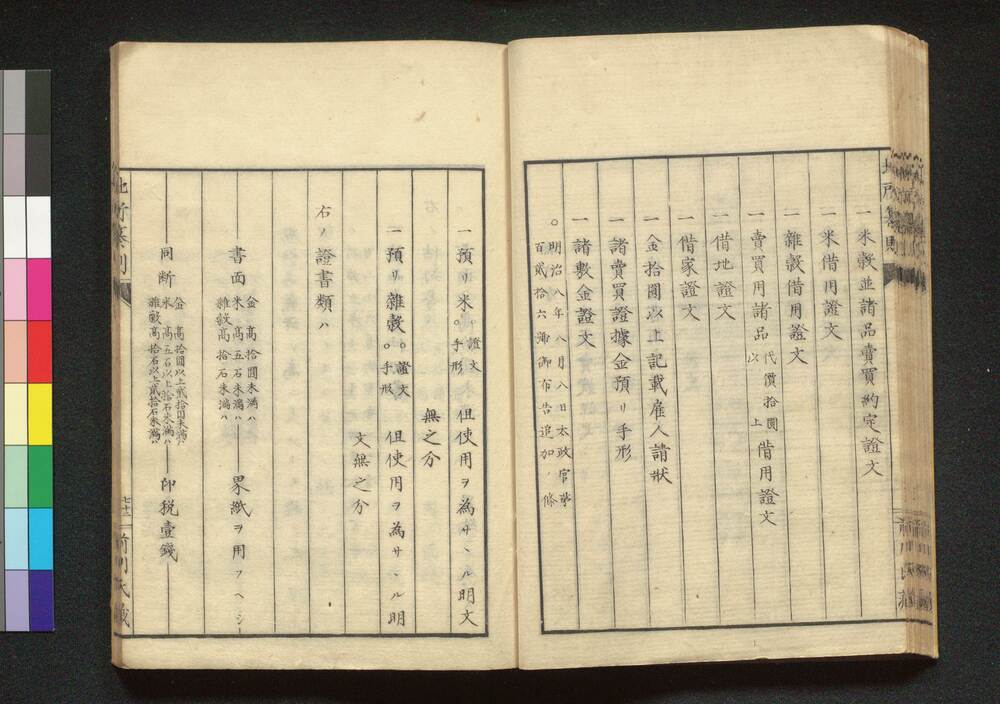 一米穀並諸品賣買約定證文
一米借用證文
一雜穀借用證文
一賣買用諸品代價拾圓以上借用證文
一借地證文
一借家證文
一金拾圓以上記載雇人請狀
一諸賣買證據金預リ手形
一諸敷金證文
○明治八年八月八日太政官第
百貳拾六號御布告追加ノ條
一預リ米○證文○手形 但使用ヲ為サヽル明文
無之分
一預リ雜穀○證文○手形 但使用ヲ為サヽル明
文無之分
右ノ證書類ハ
書面 金高拾圓未滿ハ 米高五石未滿ハ 雜穀高拾石未滿ハ 界紙ヲ用フヘシ
同斷 金高拾圓以上貳拾圓未滿ハ 米高五石以上拾石未滿ハ 雜穀高拾石以上貳拾石未滿ハ 印稅壹錢
七十二
前川氏藏